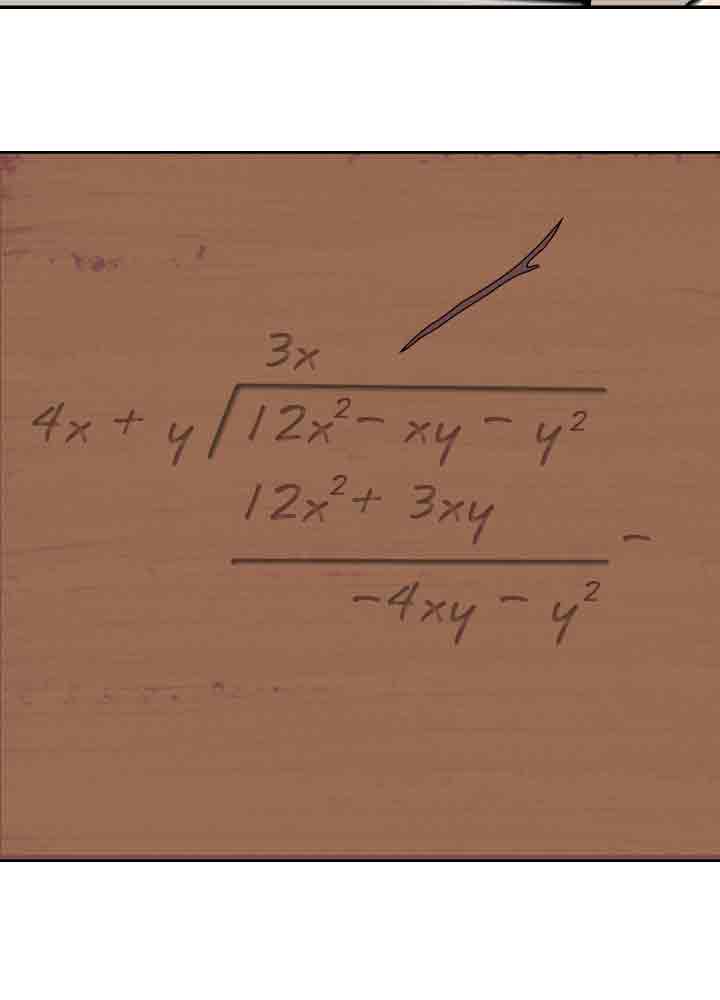 3x
4x + y 12x² - xy - y²
12x² + 3xy
-
-4xy - y²